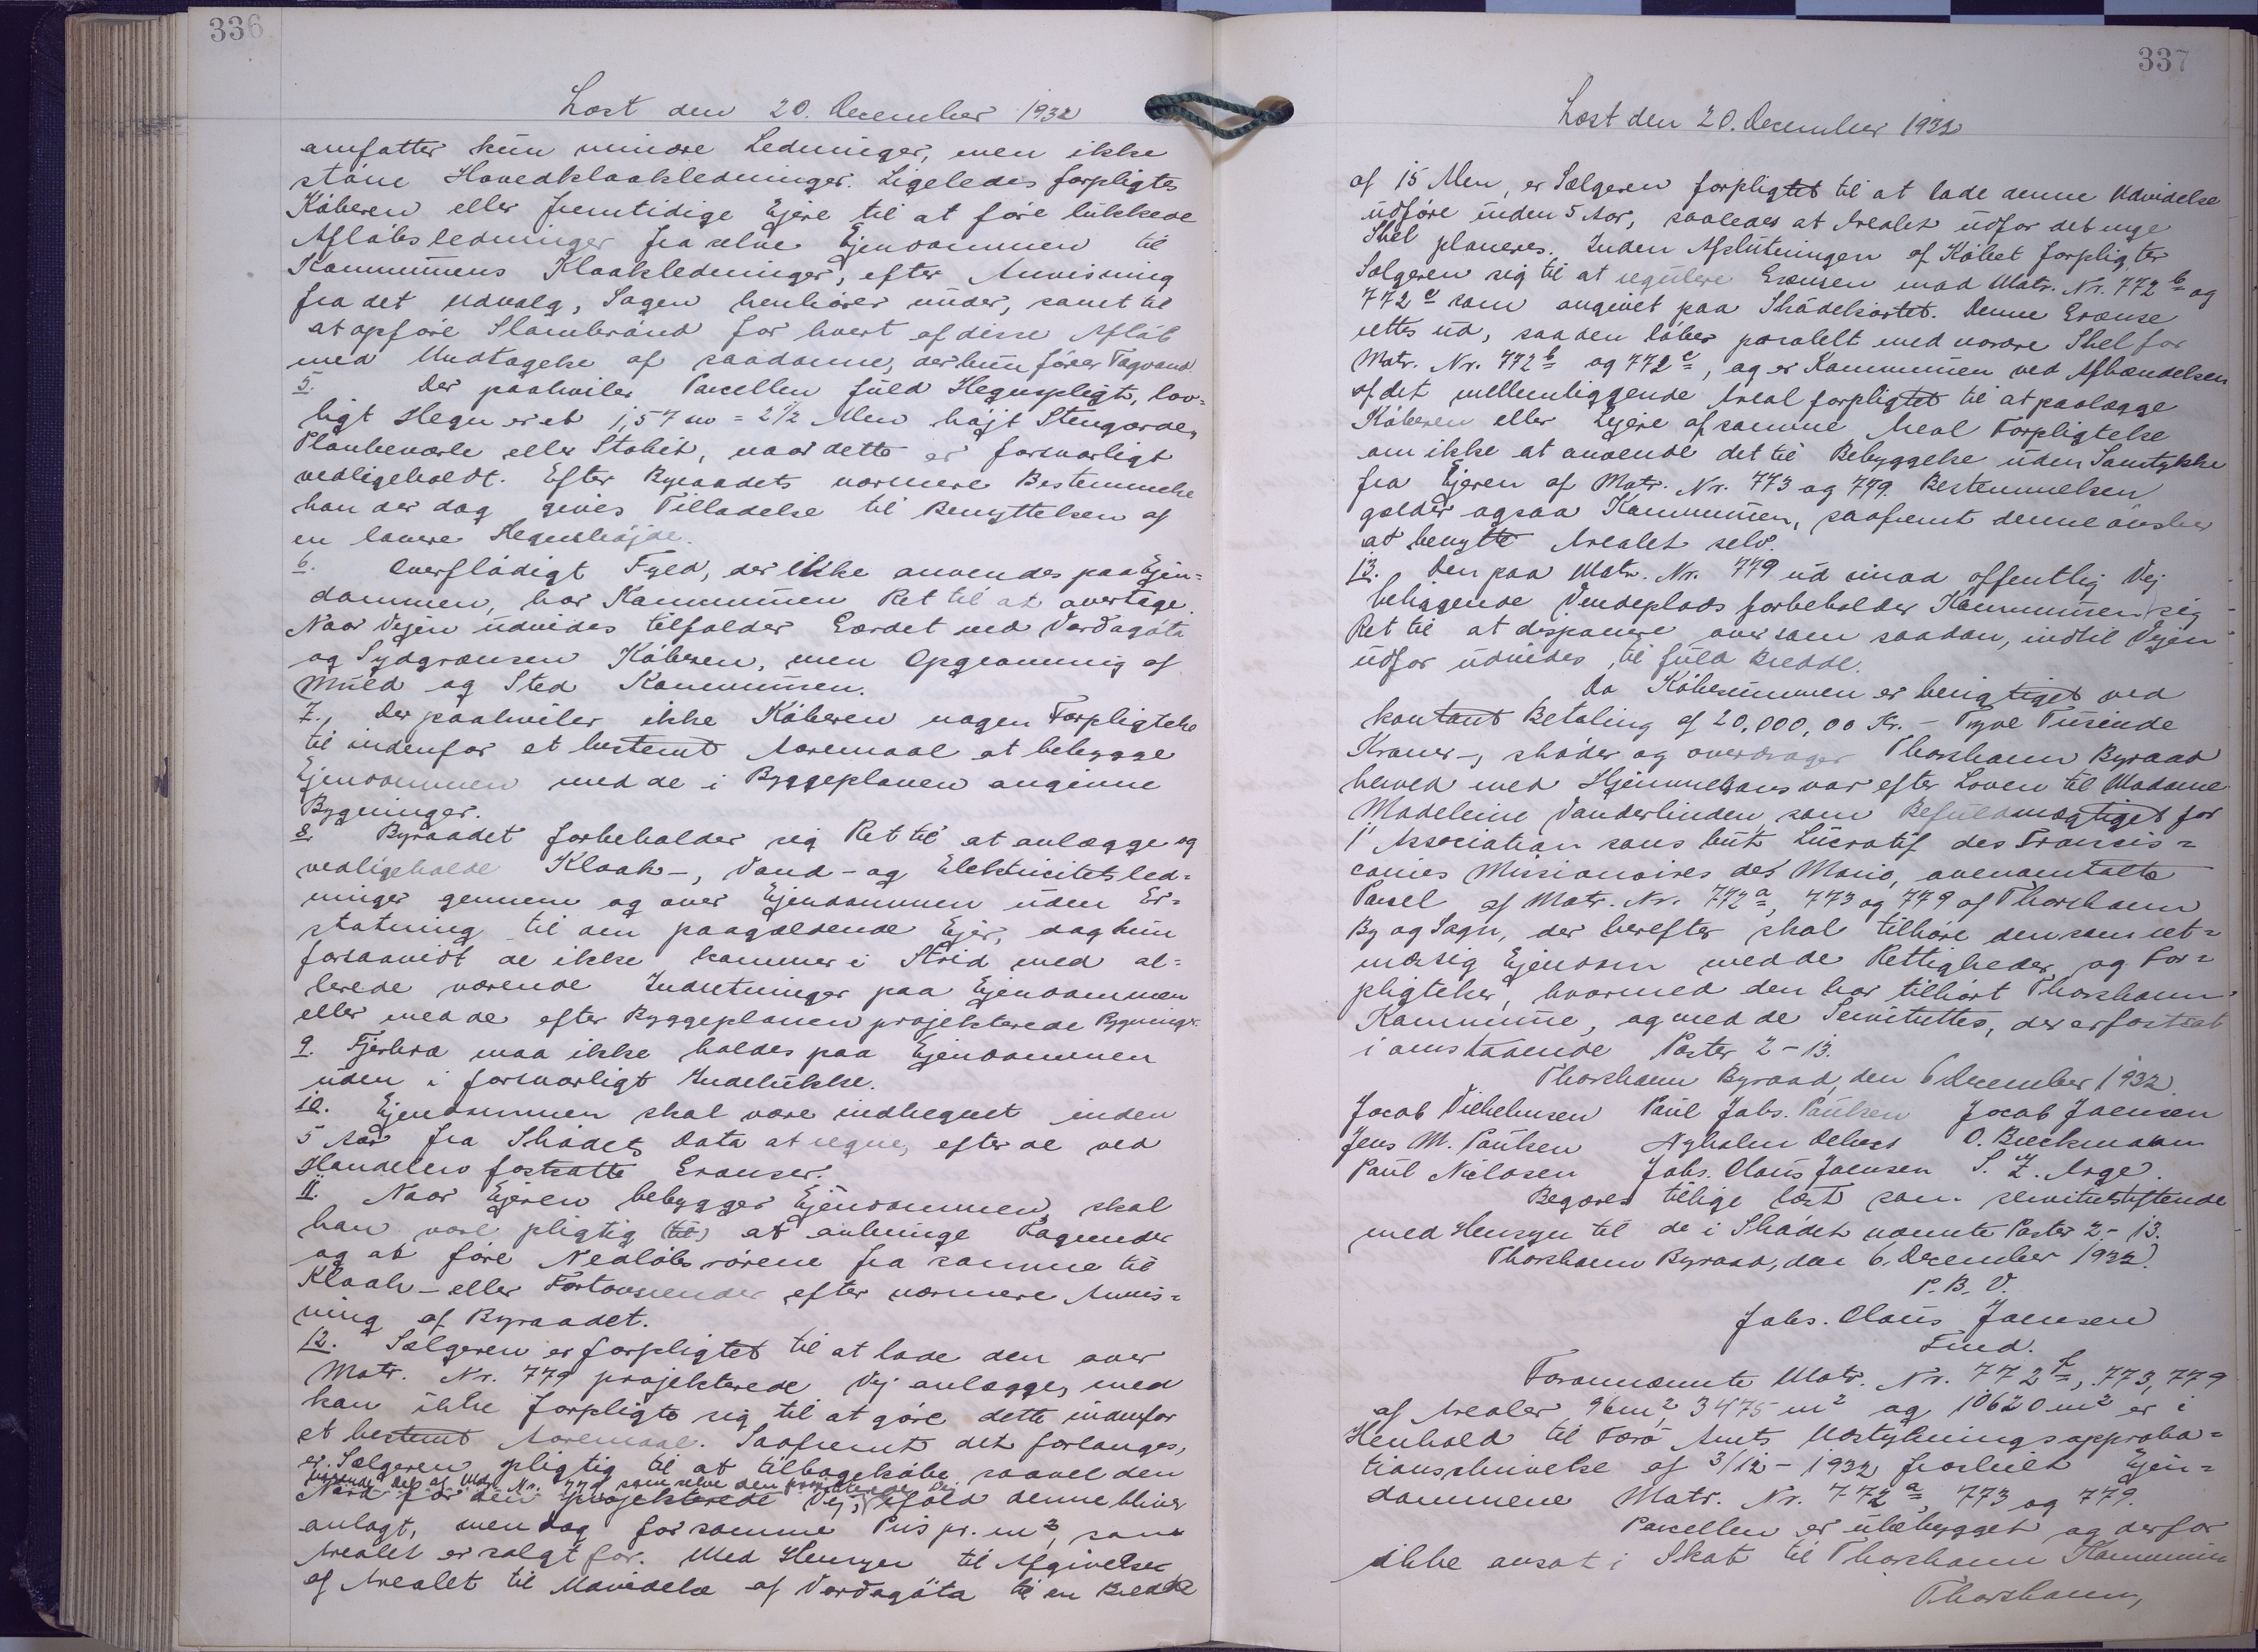 336
Læst den 20. December 1932
omfatter kun mindre Ledninger, men ikke
större Hovedkloakledninger. Ligeledes forpligtes
Köberen eller fremtidige Ejere til at före lukkede
Aflöbsledninger fra selve Ejendommen til
Kommunens Kloakledninger, efter Anvisning
fra det Udvalg, Sagen henhörer under, samt til
at opföre Slambrönd for hvert af disse Aflöb
med Undtagelse af saadanne, der kun förer Tagvand.
5. Der paahviler Parcellen fuld Hegnspligt, lov=
ligt Hegn er et 1,57 m = 2 1/2 Alen höjt Stengærde,
Plankeværk eller Stakit, naar dette er forsvarligt
vedligeholdt. Efter Byraadets nærmere Bestemmelse
kan der dog gives Tilladelse til Benyttelsen af
en lavere Hegnshöjde.
6. Overflödigt Fyld, der ikke anvendes paa Ejen=
dommen, har Kommunen Ret til at overtage.
Naar Vejen udvides tilfalder Gærdet ved Vardagöta
og Sydgrænsen Köberen, men Opgravning af
Muld og Sten Kommunen.
7. Der paahviler ikke Köberen nogen Forpligtelse
til indenfor et bestemt Aaremaal at bebygge
Ejendommen med de i Byggeplanen angivne
Bygninger.
8. Byraadet forbeholder sig Ret til at anlægge og
vedligeholde Kloak-, Vand- og Elektricitetsled=
ninger gennem og over Ejendommen uden Er=
statning til den paagældende Ejer, dog kun
forsaavidt de ikke kommer i Strid med al=
lerede værende Indretninger paa Ejendommen
eller med de efter Byggeplanen projekterede Bygninger.
9. Fjerkræ maa ikke holdes paa Ejendommen
uden i forsvarligt Indelukke.
10. Ejendommen skal være indhegnet inden
5 Aar fra Sködets Dato at regne, efter de ved
Handelen fastsatte Grænser.
11. Naar Ejeren bebygger Ejendommen, skal
han være pligtig (til) at anbringe Tagrender
og at före Nedlöbsrörene fra samme til
Kloak- eller Fortovsrender efter nærmere Anvis=
ning af Byraadet.
12. Sælgeren er forpligtet til at lade den over
Matr. Nr. 779 projekterede Vej anlægge, men
kan ikke forpligte sig til at göre dette indenfor
et bestemt Aaremaal. Saafremt det forlanges,
er Sælgeren pligtig til at tilbageköbe saavel den
Del af Matr. Nr. 779 som selve den projekterede Vej
Nord for den projekterede Vej, ifald denne bliver
anlagt, men dog for samme Pris pr. m², som
Arealet er solgt for. Med Hensyn til Afgivelse
af Arealet til Udvidelse af Vardagöta til en Bredde
337
Læst den 20. December 1932
af 15 Alen, er Sælgeren forpligtet til at lade denne Udvidelse
udföre inden 5 Aar, saaledes at Arealet udfor det nye
Skel planeres. Inden Afslutningen af Köbet forpligter
Sælgeren sig til at regulere Grænsen mod Matr. Nr. 772 b og
772 c som angivet paa Sködekortet. Denne Grænse
rettes ud, saa den löber paralelt med norære Skel for
Matr. Nr. 772 b og 772 c, og er Kommunen ved Afhændelsen
af det mellemliggende Areal forpligtet til at paalægge
Köberen eller Lejere af samme Areal Forpligtelse
om ikke at anvende det til Bebyggelse uden Samtykke
fra Ejeren af Matr. Nr. 773 og 779. Bestemmelsen
gælder ogsaa Kommunen, saafremt denne önsker
at benytte Arealet selv.
13. Den paa Matr. Nr. 779 ud mod offentlig Vej
beliggende Vendeplads forbeholder Kommunen sig
Ret til at disponere over som saadan, indtil Vejen
udfor udvides til fuld Bredde.
Da Köbesummen er berigtiget ved
kontant Betaling af 20.000,00 Kr. - Tyve Tusinde
Kroner -, sköder og overdrager Thorshavn Byraad
herved med Hjemmelsansvar efter Loven til Madame
Madeleine Vanderlinden som Befuldmægtiget for
l'Association sans but Lucratif des Francis=
caines Missionaires de Marie, ovenomtalte
Parcel af Matr. Nr. 772 a, 773 og 779 af Thorshavn
By og Sogn, der herefter skal tilhöre den som ret=
mæssig Ejendom med de Rettigheder og For=
pligtelser, hvormed den har tilhört Thorshavn
Kommune, og med de Servitutter, der er fastsat
i omstaaende Poster 2-13.
Thorshavn Byraad, den 6 December 1932.
Jacob Vilhelmsen Paul Johs. Paulsen Jacob Joensen
Jens M. Poulsen Nyholm Debess O. Breckmann
Paul Niclasen Johs. Claus Joensen S. Z. Arge.
Begæres tillige læst som servitutstiftende
med Hensyn til de i Sködet nævnte Poster 2-13.
Thorshavn Byraad, den 6. December 1932.
P. B. V.
Johs. Claus Joensen
Fmd.
Forannævnte Matr. Nr. 772 f, 773, 779
af Arealer 96 m², 3475 m² og 10620 m² er i
Henhold til Færö Amts Udstykningsapproba=
tionsskrivelse af 3/12-1932 fraskilt Ejen=
dommene Matr. Nr. 772 a, 773 og 779.
Parcellen er ubebygget og derfor
ikke ansat i Skat til Thorshavn Kommune
Thorshavn,